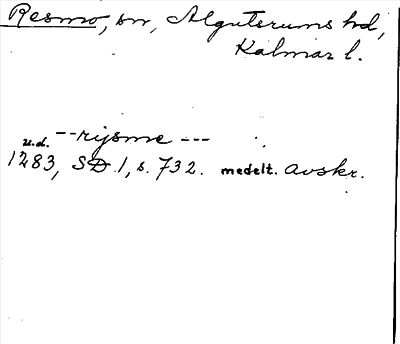 Resmo, sn, Algutsrums hd,
Kalmar l.
--rijsme ---
u.d.
1283, SD 1, s. 732. medelt. avskr.